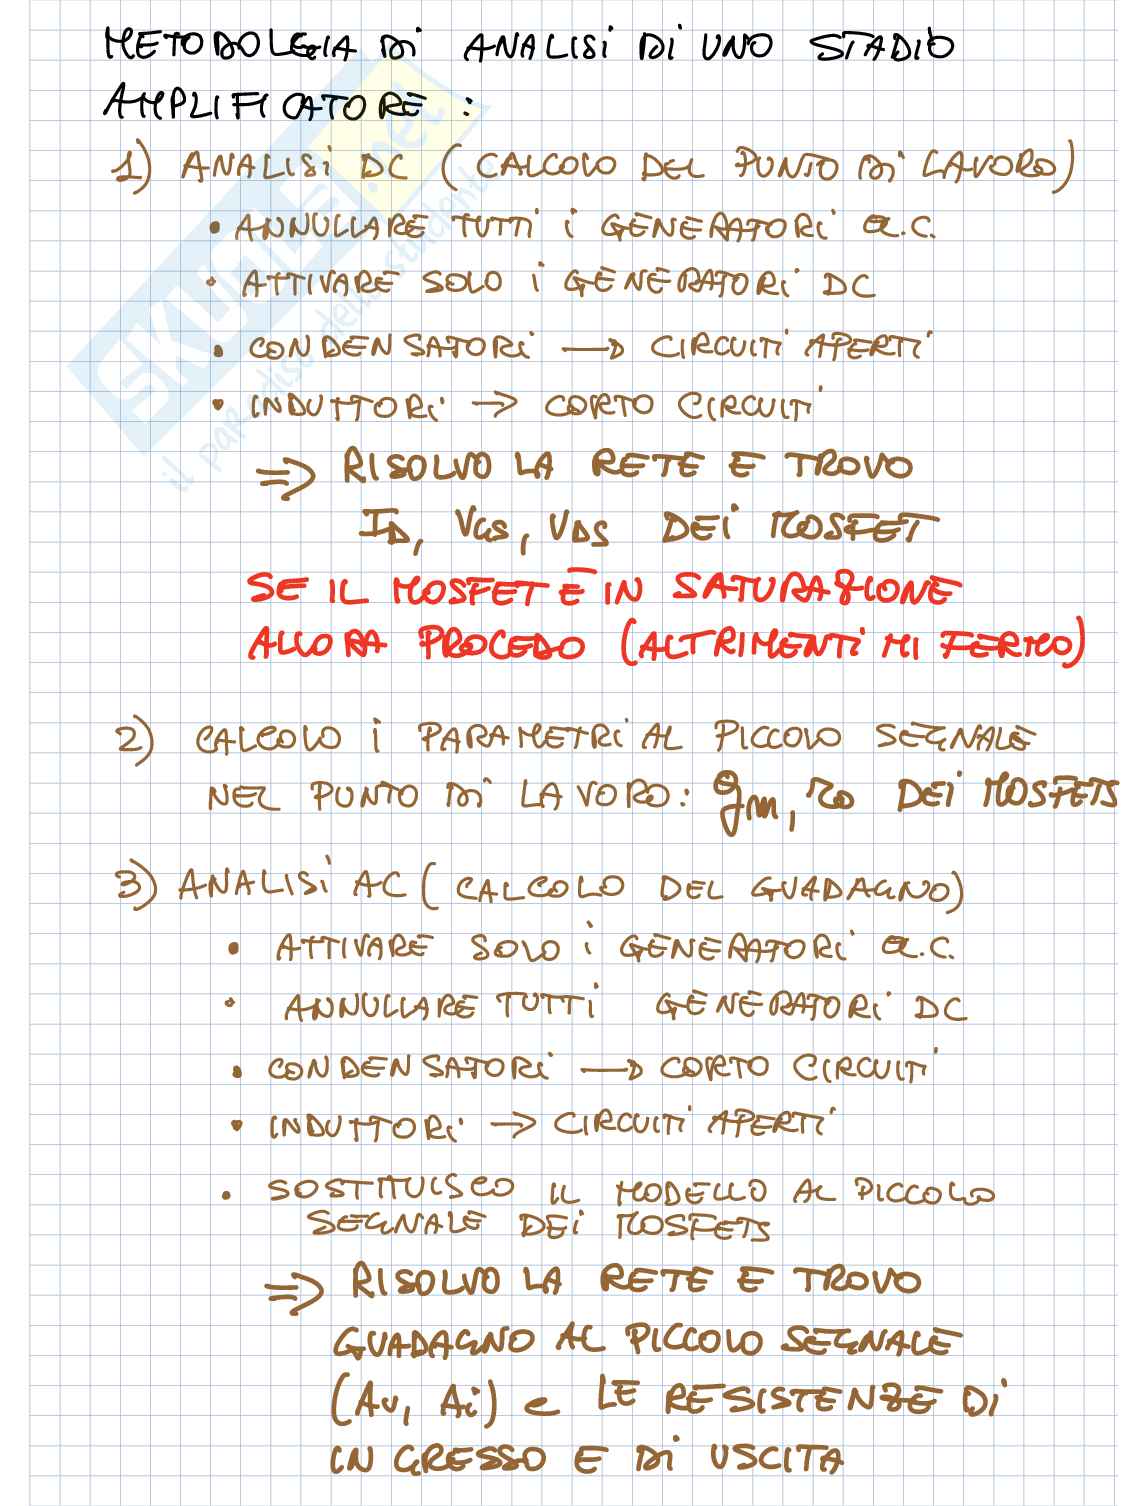 METODOLOGIA DI ANALISI DI UNO STADIO
AMPLIFICATORE :
1) ANALISI DC ( CALCOLO DEL PUNTO DI LAVORO)
• ANNULLARE TUTTI i GENERATORI a.c.
• ATTIVARE SOLO i GENERATORI DC
• CONDENSATORI → CIRCUITI APERTI
• INDUTTORI → CORTO CIRCUITI
⇒ RISOLVO LA RETE E TROVO
ID, VGS, VDS DEI MOSFET
SE IL MOSFET È IN SATURAZIONE
ALLORA PROCEDO (ALTRIMENTI MI FERMO)
2) CALCOLO i PARAMETRI AL PICCOLO SEGNALE
NEL PUNTO DI LAVORO: gm, ro DEI MOSFETS
3) ANALISI AC ( CALCOLO DEL GUADAGNO)
• ATTIVARE SOLO i GENERATORI a.c.
• ANNULLARE TUTTI GENERATORI DC
• CONDENSATORI → CORTO CIRCUITI
• INDUTTORI → CIRCUITI APERTI
• SOSTITUISCO IL MODELLO AL PICCOLO
SEGNALE DEI MOSFETS
⇒ RISOLVO LA RETE E TROVO
GUADAGNO AL PICCOLO SEGNALE
(Av, Ai) e LE RESISTENZE DI
INGRESSO E DI USCITA
SKUOLA.net
il paradiso dello studente